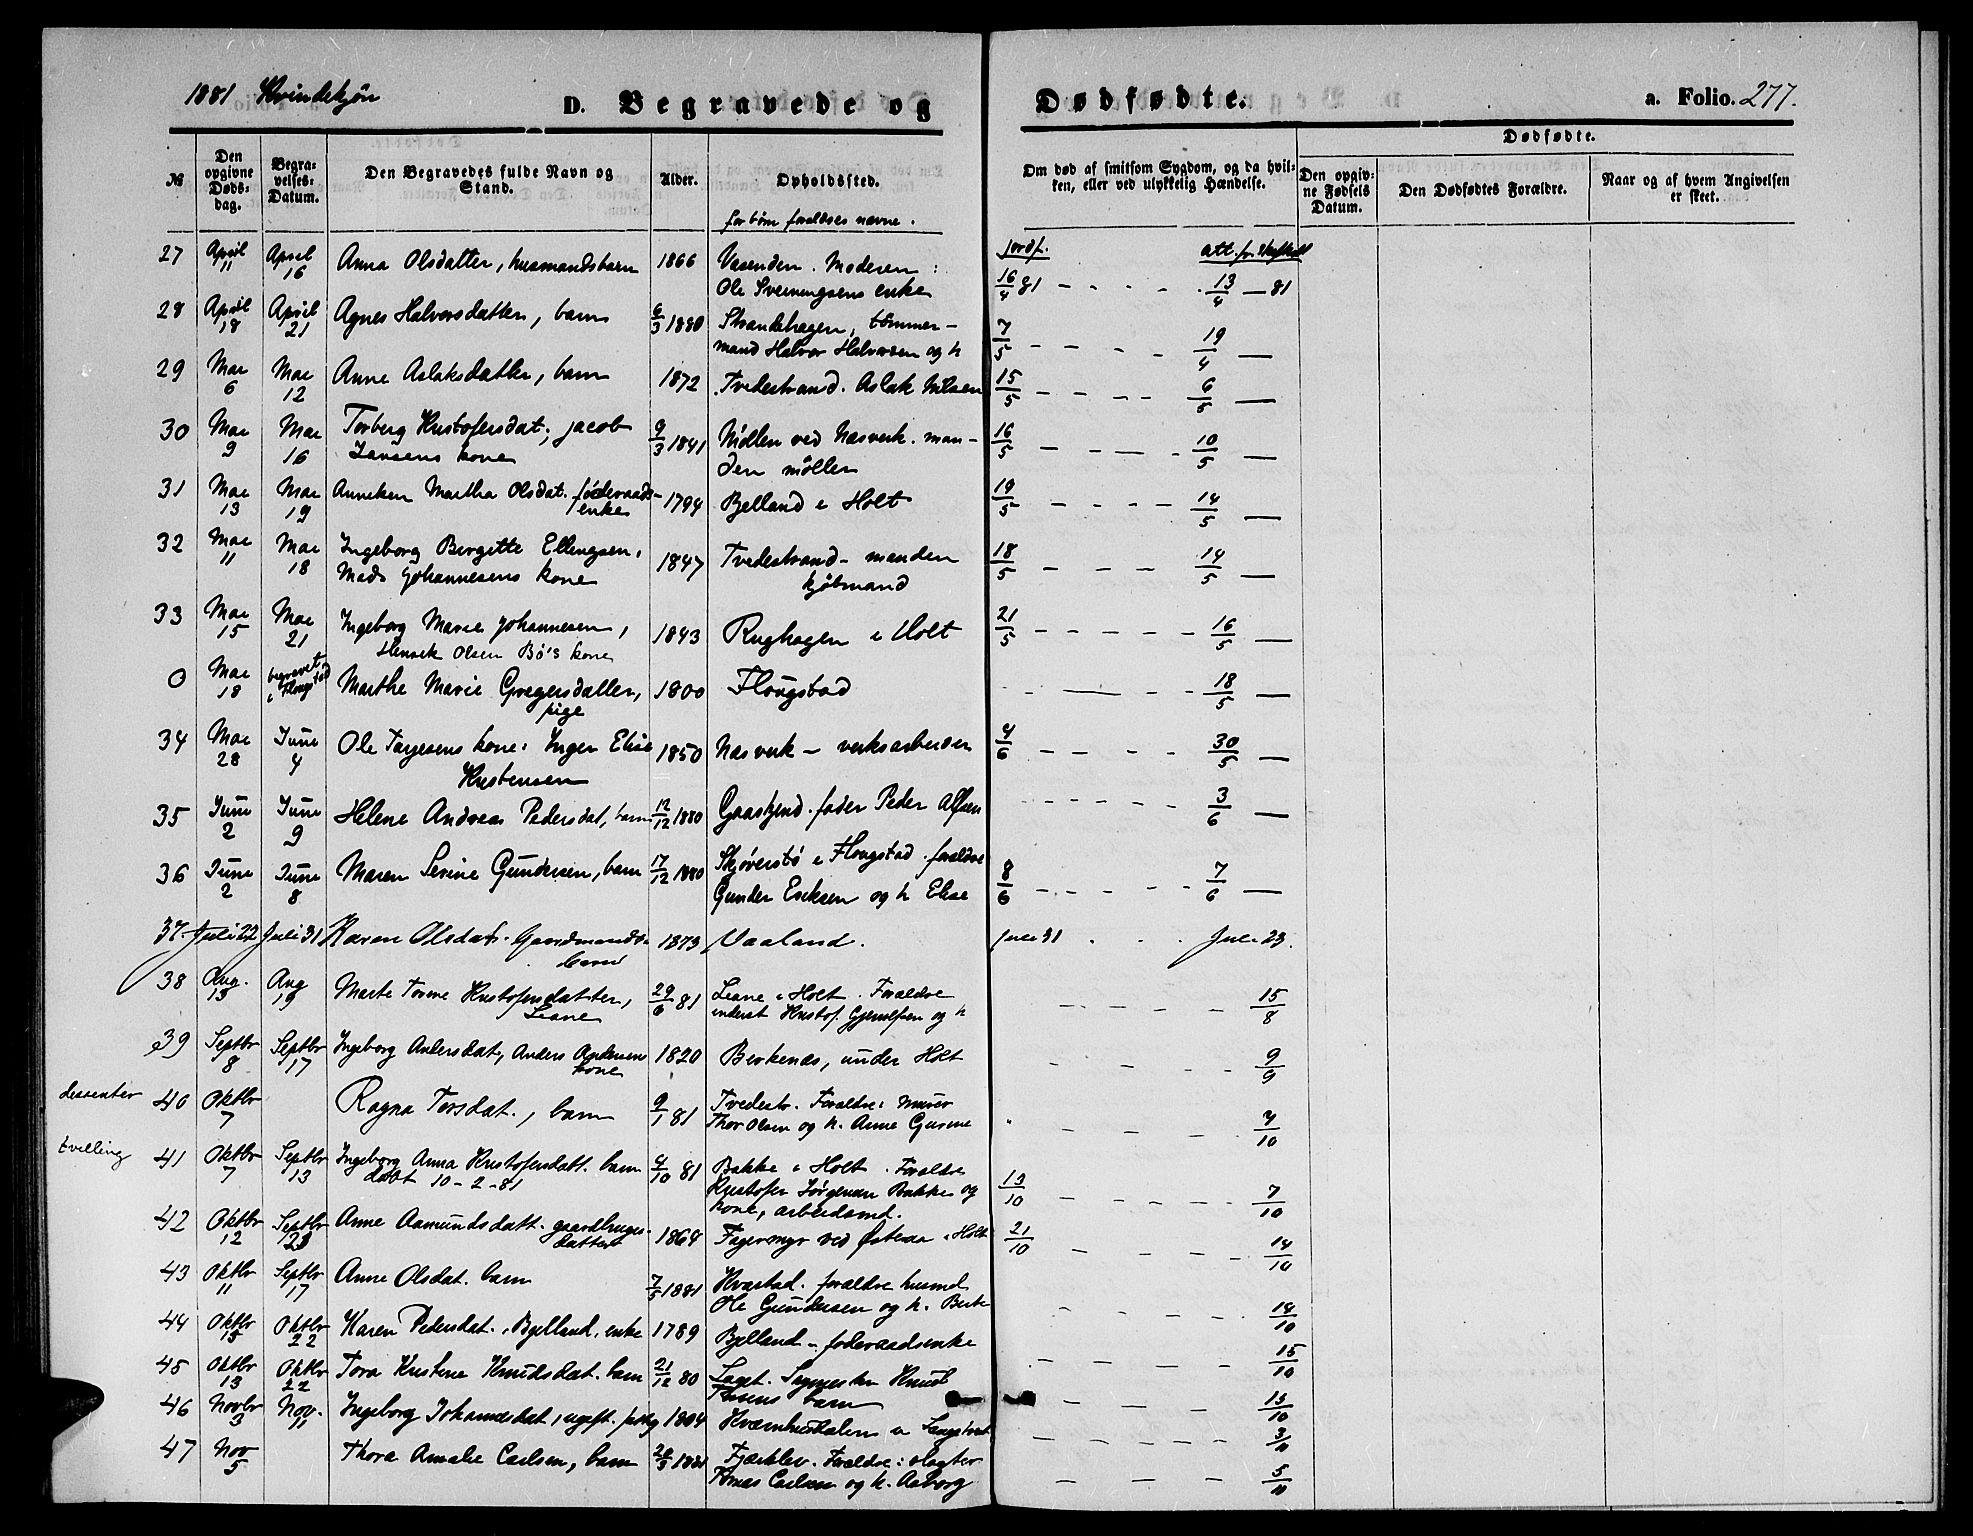 1881 Kvindekjøn
D. Begravede og Dødfødte.
a. Folio. 277.
№
Den opgivne Døds-dag.
Begra-velses-Datum.
Den Begravedes fulde Navn og Stand.
Alder.
Opholdssted.
for børn forældres navne.
Om død af smitsom Sygdom, og da hvil-ken, eller ved ulykkelig Hændelse.
Dødfødte.
Den opgiv-ne Fødsels Datum.
Den Dødfødtes Forældre.
Naar og af hvem Angivelsen er skeet.
jordf. att. fr.
27 April 11 April 16 Anna Olsdatter, husmandsbarn 1866 Vasenden. Moderen:
Ole Sveinungsens enke 16/4 81 - - - - 13/4 — 81
28 April 18 April 21 Agnes Halvorsdatter, barn 6/3 1880 Strandehagen, tømmer-
mand Halvor Halvorsen og h 7/5 - - - - 19/4 —
29 Mai 6 Mai 12 Anne Aslaksdatter, barn 1872 Tvedestrand. Aslak Nilsen 15/5 - - - - 6/5 —
30 Mai 9 Mai 16 Torberg Kristofersdat, Jacob
Jansens kone 9/3 1841 Møllen ved Næsverk. man-
den møller 16/5 - - - - 10/5 —
31 Mai 13 Mai 19 Anneken Martha Olsdat. føderaads-
enke 1794 Bjelland i Holt 19/5 - - - - 14/5 —
32 Mai 11 Mai 18 Ingeborg Birgitte Ellingsen,
Mads Johannesens kone 1847 Tvedestrand - manden
kjøbmand 18/5 - - - 14/5 —
33 Mai 15 Mai 21 Ingeborg Marie Johannesen,
Henrik Olsen Bø's kone 1843 Rughagen i Holt 21/5 - - - - - 16/5 —
0 Mai 18 begravet i Flougstad Marthe Marie Gregersdatter,
pige 1800 Flougstad - — - - 18/5 —
34 Mai 28 Juni 4 Ole Tarjesens kone: Inger Elise
Kristensen 1850 Næsverk - verksarbeider 4/6 - - - - 30/5 —
35 Juni 2 Juni 9 Helene Andrea Pedersdat, barn 12/12 1880 fader Peder Alfsen - - - - - 3/6 —
36 Juni 2 Juni 8 Maren Serine Gundersen, barn 17/12 1880 Skjøverstø i Flougstad. forældre
Gunder Eriksen og h Elise 8/6 - - - - 7/6 —
37. Juli 22 Juli 31 Karen Olsdat. Gaardmands-
barn 1873 Vaaland. Juli 31 . . . Juli 23.
38 Aug. 13 Aug 19 Marte Tomine Kristofersdatter,
Liane 29/6 81 Liane i Holt. Forældre
inderst Kristof. og h - - - - 15/8
39 Septbr 8 Septbr 17 Ingeborg Andersdat, Anders Andersens
kone 1820 Berkenæs, under Holt - - - - 9/9
dissenter 40 Oktbr 7 Ragna Torsdat., barn 9/1 81 Tvedestr. Forældre: Murer
Thor Olsen og h. Anne - - - 7/10
tvilling 41 Oktbr 7 Septbr 13 Ingeborg Anna Kristofersdatt. barn
døbt 10-2-81 4/10 81 Bakke i Holt. Forældre
Kristofer Jørgensen Bakke og
kone, arbeidsmd. 13/10 - - - - 7/10
42 Oktbr 12 Septbr 21 Anne Aamundsdatt. gaardbruger-
datter 1864 Fagermyr ved Østeraa i Holt 21/10 - - - - 14/10
43 Oktbr 11 Septbr 17 Anne Olsdat. barn 7/5 1881 Kvastad. forældre husmd
Ole Gundersen og h. Berte - - - - 14/10
44 Oktbr 15 Oktbr 22 Karen Pedersdat. Bjelland, enke 1789 Bjelland - føderaadsenke - - - - 15/10
45 Oktbr 13 Oktbr 22 Tora Kristine Knudsdat. barn 21/12 80 Knud
barn - - - - 13/10
46 Novbr 3 Nov. 11 Ingeborg Johannesdat, ugift 1804 - - - - 3/11
47 Nov 5 Thora Amalie Carlsen, barn 20/3 1881 Fjærklev. Forældre: slagter
Tomas Carlsen og h. Aaborg - - - - 5/10